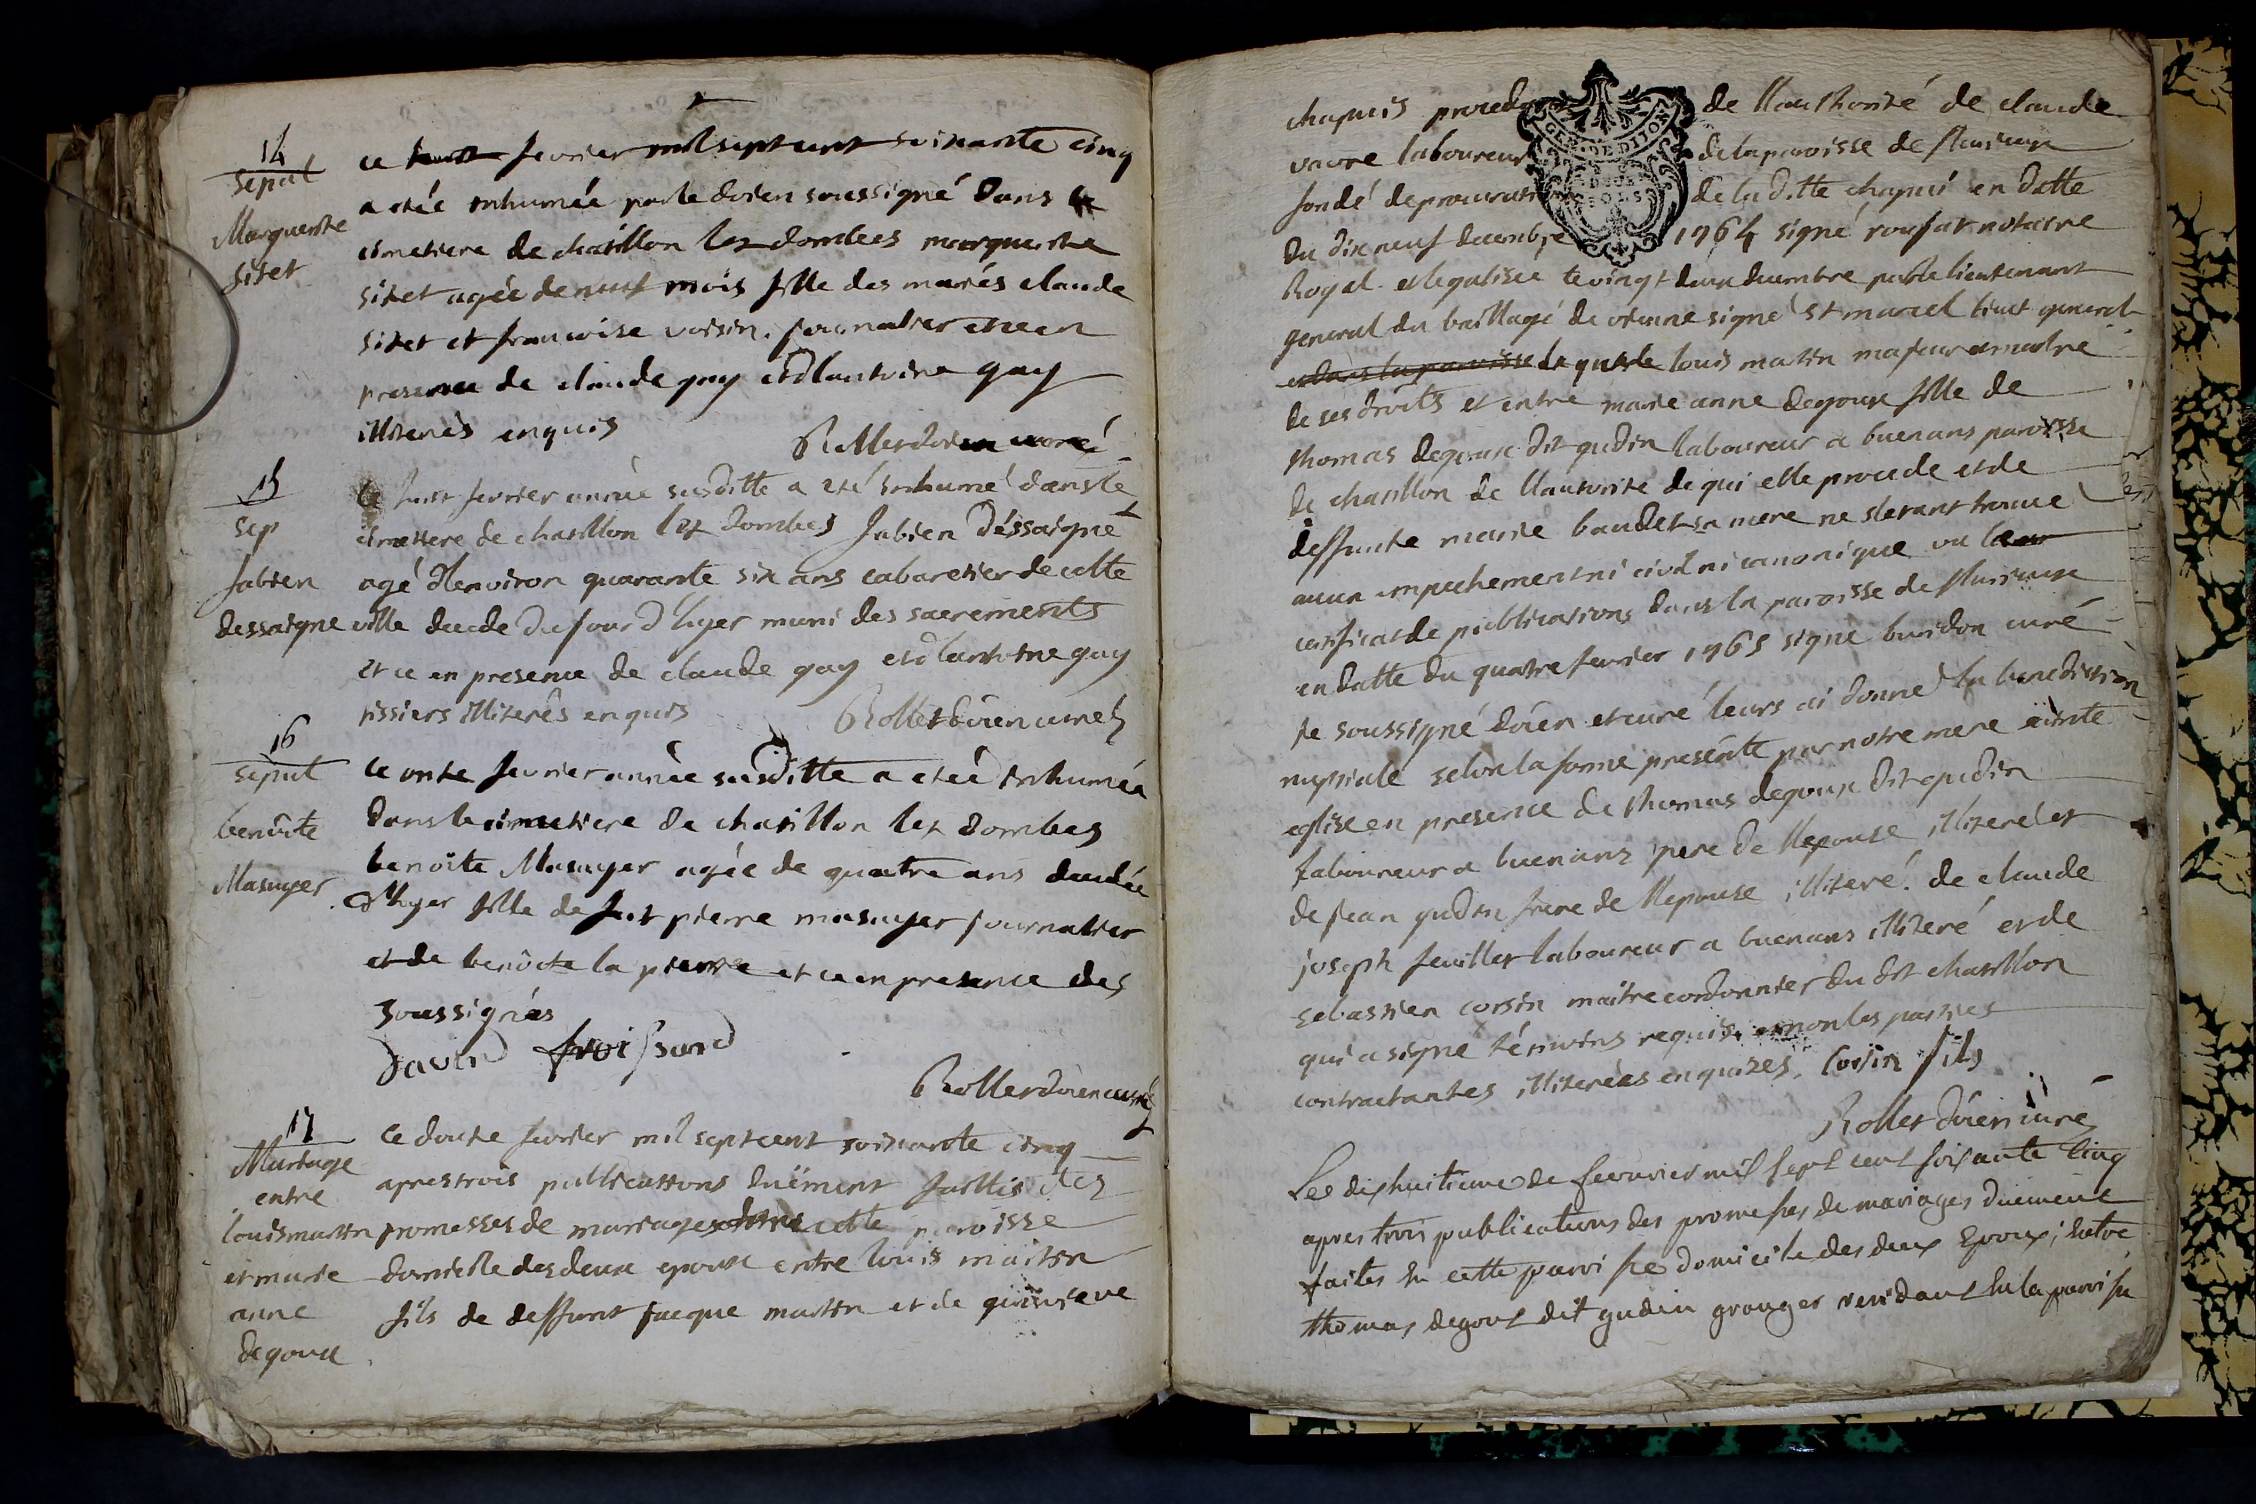 14
sepul
Marguerite
sixet
ce huit fevrier mil sept cent soixante cinq
a etée inhumée par le doien soussigné dans le
cimetiere de chatillon lez dombes marguerite
sixet agée de neuf mois fille des mariés claude
sixet et francoise voisin journalier et ce en
presence de claude guy et d'lantoine guy
illiterés enquis
Rollet doien curé
15
sep
fabien
dessaigne
le huit fevrier année susditte a eté inhumé dans le
cimetiere de chatillon lez dombes fabien dessaigne
agé d'lenviron quarante six ans cabaretier de cette
ville decede du jour d'hyer muni des sacrements
et ce en presence de claude guy et d'lantoine guy
tissiers illiterés enquis
Rollet doien curé
16
sepul
benoite
Masuyer
ce onze fevrier année susditte a etée inhumée
dans le cimetiere de chatillon lez dombes
benoite Masuyer agée de quatre ans decedée
d'hyer fille de feu pierre masuyer journalier
et de benoite la pierre et ce en presence des
soussignés
David froissard
Rollet doien curé
17
Mariage
entre
louis martin
et marie
anne
degoux
ce douze fevrier mil sept cent soixante cinq
apres trois publications duëment faittes des
promesses de mariages dans cette paroisse
domicile des deux epoux entre louis martin
fils de deffunt jacque martin et de genevieve
chapuis procedant de llauthorité de claude
vavre laboureur de la paroisse de
fondé de procuration de la ditte chapuis en datte
du dix neuf decembre 1764 signé notaire
Royal et legalisée le vingt deux decembre par le lieutenant
general du baillagé de vienne signé st marcel lieut general
et dans la paroisse de que le louis matin majeur et maitre
de ses droits et entre marie anne degoux fille de
thomas degoux dit gudin laboureur a buenans paroisse
de chatillon de llautorité de qui elle procede et de
deffunte marie baudet sa mere ne sletant trouvé
aucun empechement ni civil ni canonique vu le
certificat de publications dans la paroisse de
en datte du quatre fevrier 1765 signé buridon curé
je soussigné doien et curé leurs ai donné la benediction
nuptiale selon la forme presente par notre mere sainte
eglise en presence de thomas degoux dit gudin
laboureur a buenans pere de llepouse illiteré et
de jean gudin frere de llepouse illiteré. de claude
joseph feuillet laboureur a buenans illiteré et de
sebastien corsin maitre cordonnier du dit chatillon
qui a signé témoins requis et non les parties
contractantes illiterées enquises. Corsin fils
Rollet doien curé
GEN. DE DIJON
DEUX
SOLS
Le dixhuitieme de fevrier mil sept cent soixante cinq
apres trois publications des promesses de mariages duement
faites en cette paroisse domicile des deux Epoux; Entre
thomas degout dit gudin granger residant en la paroisse